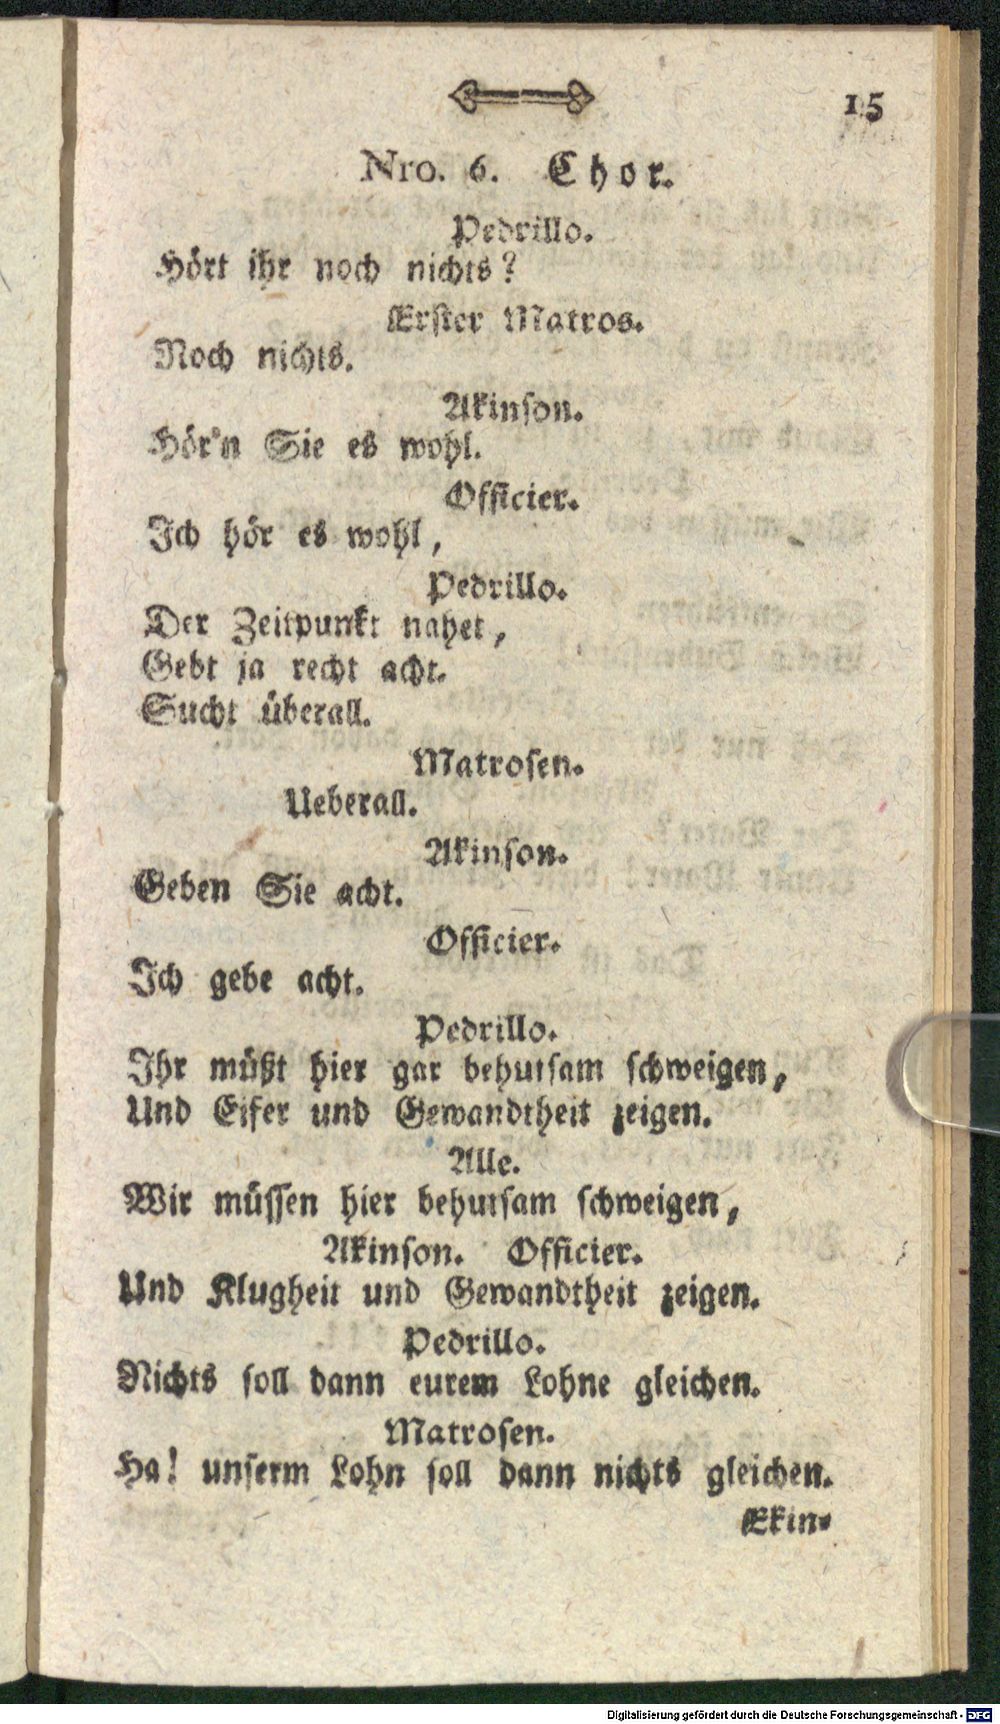 15
Nro. 6. Chor.
Pedrillo.
Hört ihr noch nichts?
Erster Matros.
Noch nichts.
Akinson.
Hör'n Sie es wohl.
Officier.
Ich hör es wohl,
Pedrillo.
Der Zeitpunkt nahet,
Gebt ja recht acht.
Sucht überall.
Matrosen.
Ueberall.
Akinson.
Geben Sie acht.
Officier.
Ich gebe acht.
Pedrillo.
Ihr müßt hier gar behutsam schweigen,
Und Eifer und Gewandtheit zeigen.
Alle.
Wir müssen hier behutsam schweigen,
Akinson. Officier.
Und Klugheit und Gewandtheit zeigen.
Pedrillo.
Nichts soll dann eurem Lohne gleichen.
Matrosen.
Ha! unserm Lohn soll dann nichts gleichen.
Ekin-
Digitalisierung gefördert durch die Deutsche Forschungsgemeinschaft - DFG